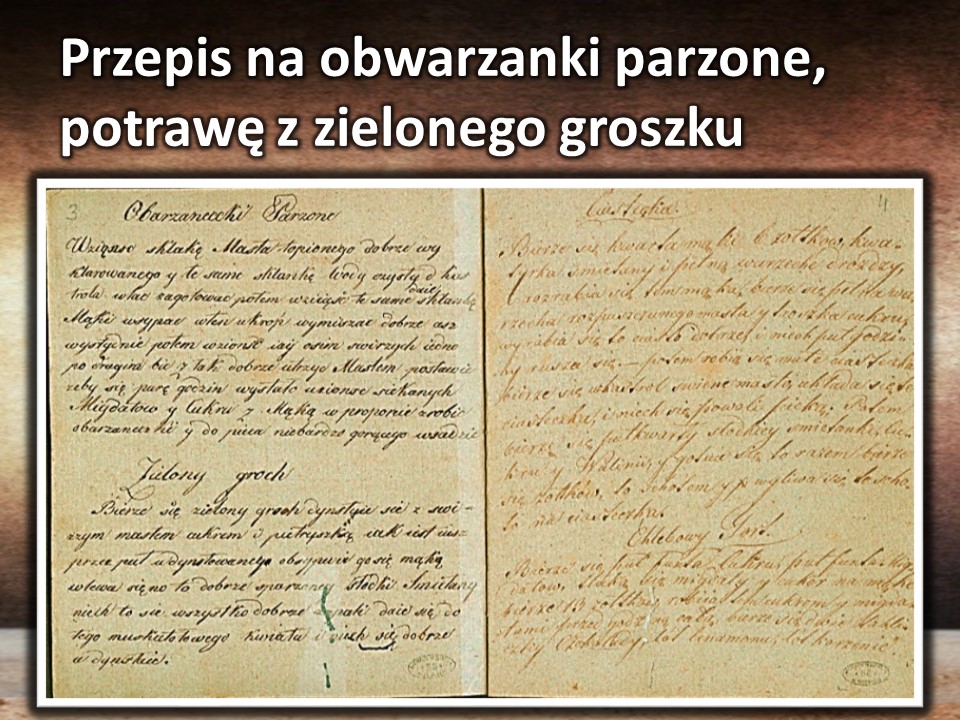 Przepis na obwarzanki parzone,
potrawę z zielonego groszku
3
Obarzaneczki Parzone
Wziąnso sklakę Masła topionego dobrze wy
klarowanego y te same sklankę Wody czysty d
trola wlac zagotowac potem wzciąść te same sklankę
daic
Mąki wsypac wten ukrop wymiszac dobrze asz
wystydnie potem wzionść iaj osim swirzych iedno
po drugim bić y tak dobrze utrzyc Masłem postawic
żeby się parę godzin wystało uzionse siekanych
Migdałow y Cukru z Mąką w proporcie zrobic
obarzaneczki y do pieca niebardzo gorącego wsadzic
Zielony groch
Bierze się zielony groch dynstuje sie z swi-
żym masłem cukrem i pietryszką iak iest iusz
przez puł udynstowanego obsypuie go się mąką
wlewa się no to dobrze sparzoney słodki Smietany
niech to sie wszystko dobrze daie się do
tego muszkatotowego kwiatu i niech się dobrze
udynstuie.
4
Ciasteczka
Bierze się kwarta mąki 6 żołtkow, kwa-
tyrka smietany i pełną warzeche drożdzy,
rozrabia się tem mąka, bierze się pełna wa
rzecha rozpuszczonego masła y troszka cukru,
wyrabia się to ciasto dobrze, i niech puł godzi-
ny rusza się. potem robią się małe ciasteczka
bierze się wkastrol swieże masło, układa się te
ciasteczka, i niech się powoli pieką. Potem
bierze się pułkwarty słodkiey smietanki, Cu-
kru y Waniliu, y gotuie się to razem bierze
się żołtkow, to y wyliwa się to
to na ciasteczka.
Chlebowy Tort.
Bierze się puł funta Cukru, puł funta Mig
dałow, tłuką się migdały y cukier na mąkę
bierze 13 żołtkow, uciera się z cukrem y migda-
łami przez godzinę całą, bierze się dwie Tabli-
czki Czekolady, łot Cinamonu, łot korzenie